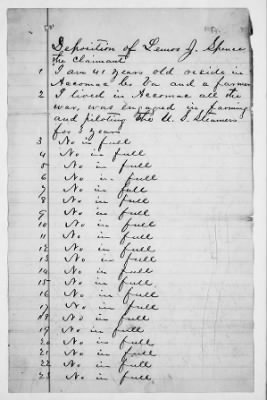 Deposition of Lemos J. Spence
the Claimant
1 I am 41 years old reside in
Accomac Co Va and a farmer
2 I lived in Accomac all the
war, was engaged in farming
and piloting the U. S. Steamers
for 2 years
3 No in full
4 No in full
5 No in full
6 No in full
7 No in full
8 No in full
9 No in full
10 No in full
11 No in full
12 No in full
13 No in full
14 No in full
15 No in full
16 No in full
17 No in full
18 No in full
19 No in full
20 No in full
21 No in full
22 No in full
23 No in full